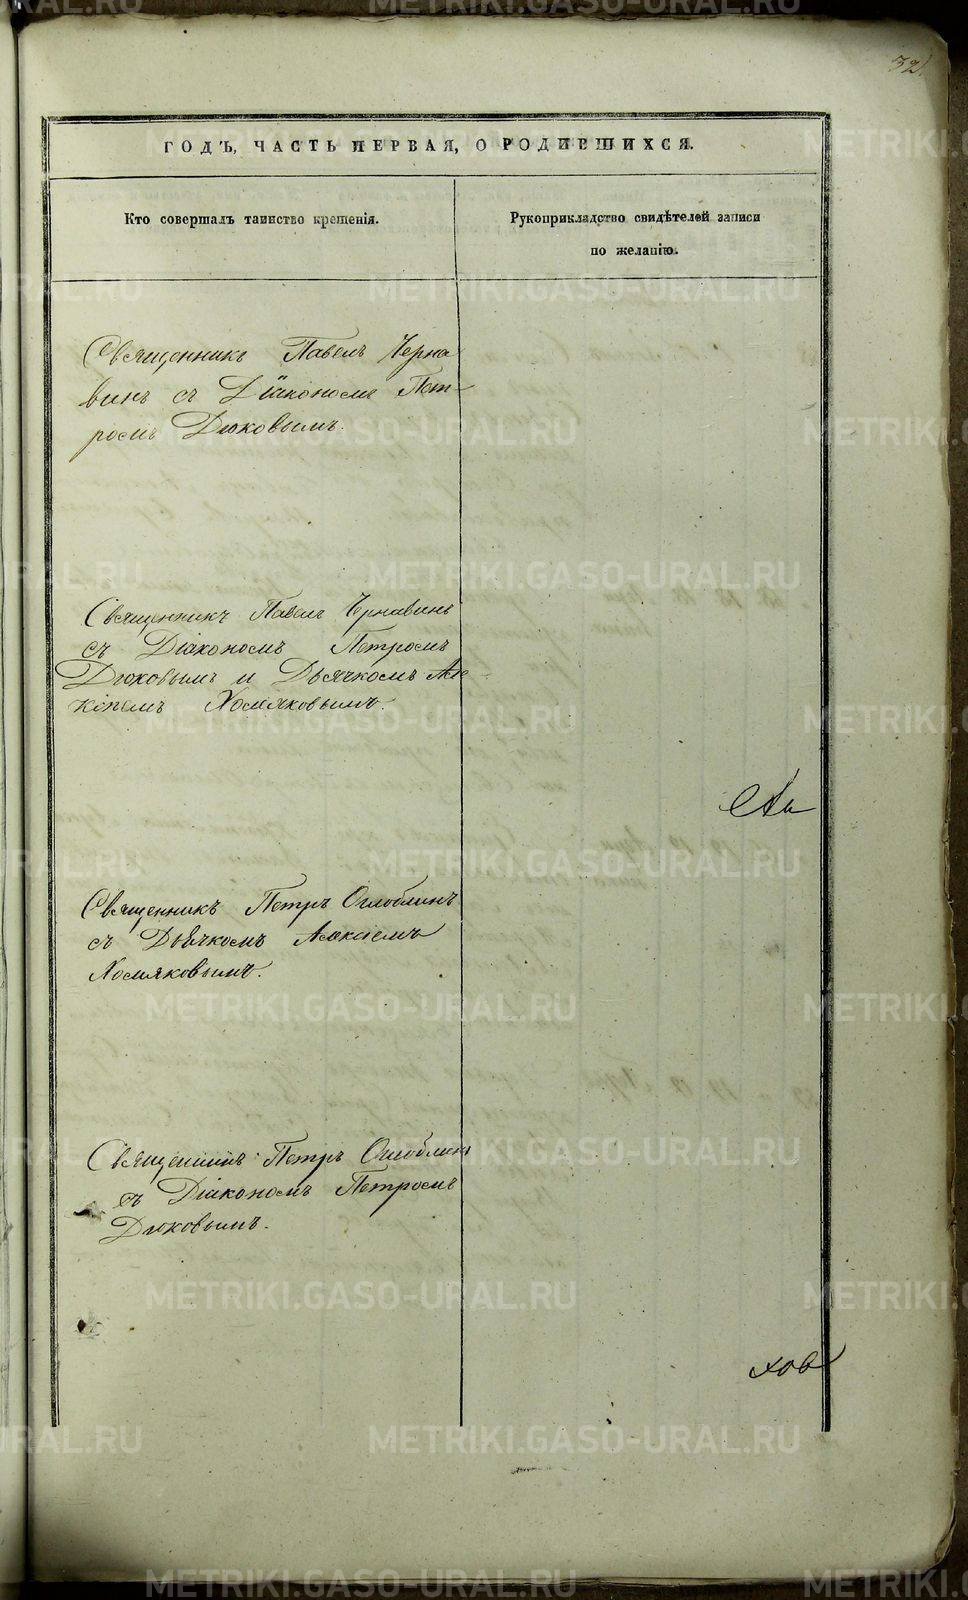 32
ГОДЪ, ЧАСТЬ ПЕРВАЯ, О РОДИВШИХСЯ.
Кто совершалъ таинство крещенія.
Рукоприкладство свидѣтелей записи
по желанію.
Священникъ Павелъ Черна
винъ съ Діакономъ Пет-
ромъ Дюковымъ.
Священникъ Павелъ Чернавинъ
съ Діакономъ Петромъ
Дюковымъ и Дьячкомъ Але-
ксіемъ Хомяковымъ.
Священникъ Петръ Оглоблинъ
съ Дьячкомъ Алексіемъ
Хомяковымъ.
Священникъ Петръ Оглоблинъ
съ Діакономъ Петромъ
Дюковымъ.
хов
METRIKI.GASO-URAL.RU